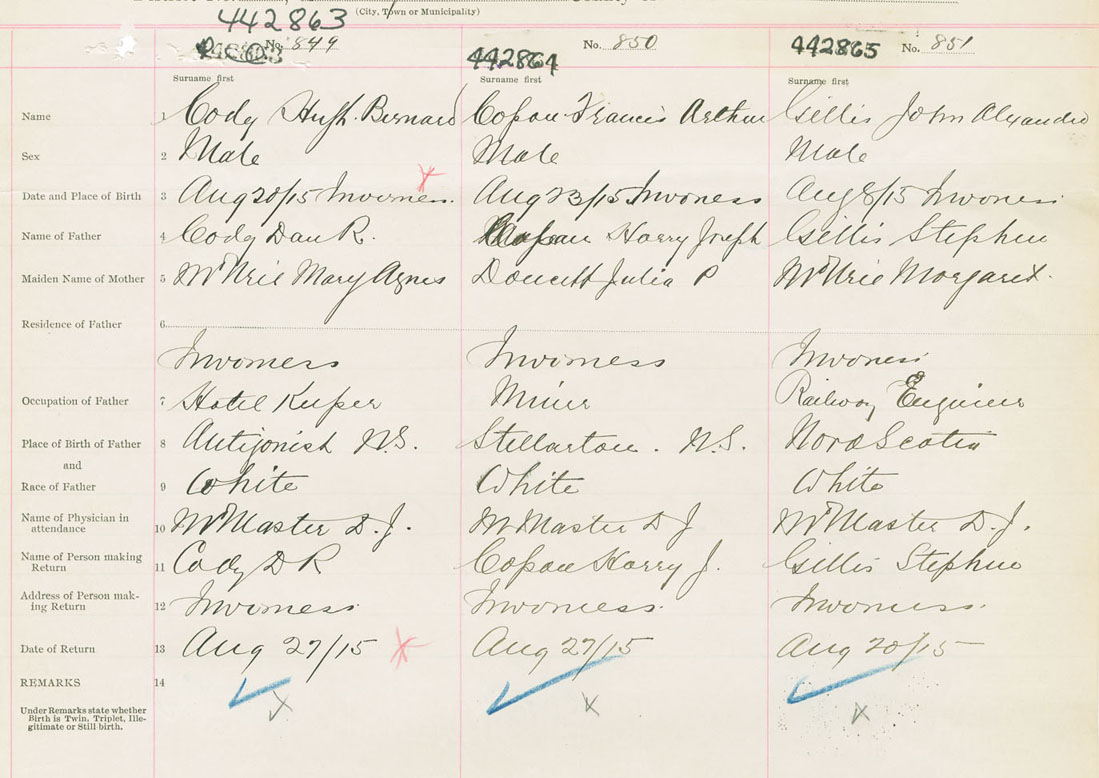 (City, Town or Municipality)
442863 442864 442865
No. 849 No. 850 No. 851
Surname first Surname first Surname first
Name 1 Cody Hugh Bernard Copan Francis Arthur Gillis John Alexander
Sex 2 Male Male Male
Date and Place of Birth 3 Aug 20/15 Inverness. Aug 23/15 Inverness Aug 8/15 Inverness
Name of Father 4 Cody Dan R. Harry Joseph Gillis Stephen
Maiden Name of Mother 5 McNeil Mary Agnes Doucett Julia P McNeil Margaret.
Residence of Father 6
Inverness Inverness Inverness
Occupation of Father 7 Hotel Keeper Miner Railway Engineer
Place of Birth of Father 8 Antigonish N.S. Stellarton. N.S. Nova Scotia
and
Race of Father 9 White White White
Name of Physician in
attendance 10 McMaster D.J. McMaster D J McMaster D.J.
Name of Person making
Return 11 Cody D R Copan Harry J. Gillis Stephen
Address of Person mak-
ing Return 12 Inverness. Inverness. Inverness.
Date of Return 13 Aug 27/15 Aug 27/15 Aug 20/15
REMARKS 14
Under Remarks state whether
Birth is Twin, Triplet, Ille-
gitimate or Still birth.